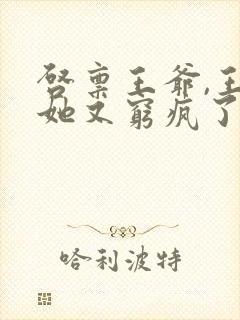 启禀王爷,王
她又窮疯了
哈利波特